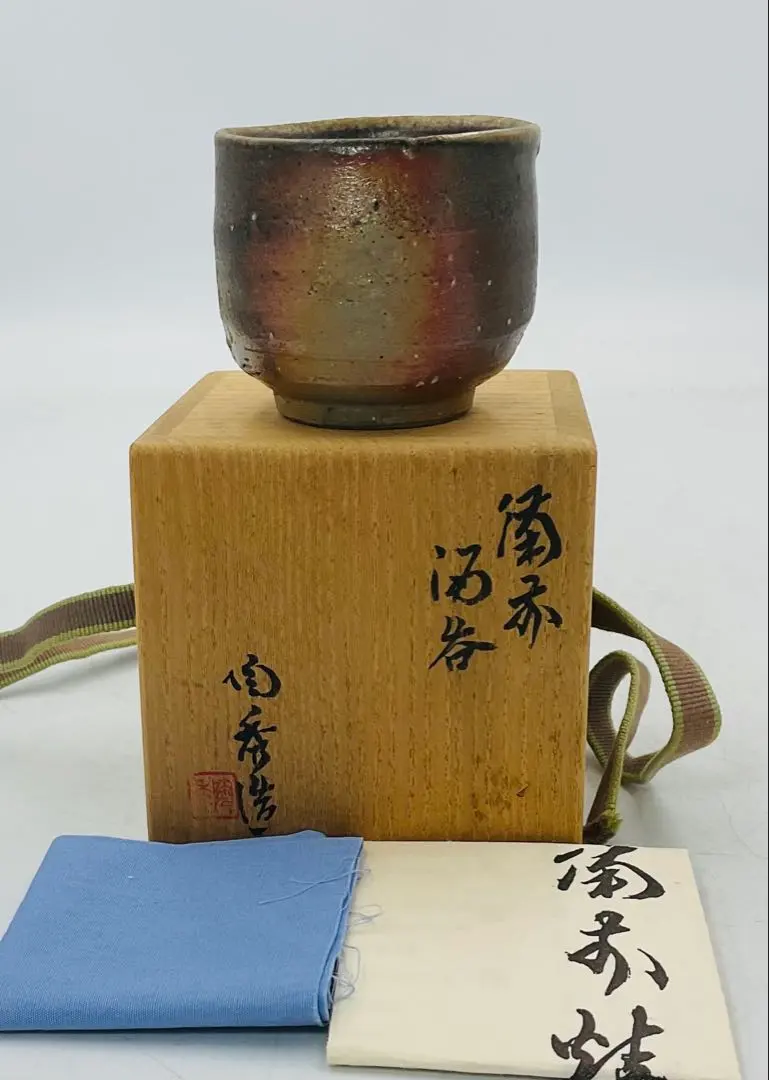 備前
酒呑
陶秀造
備前焼